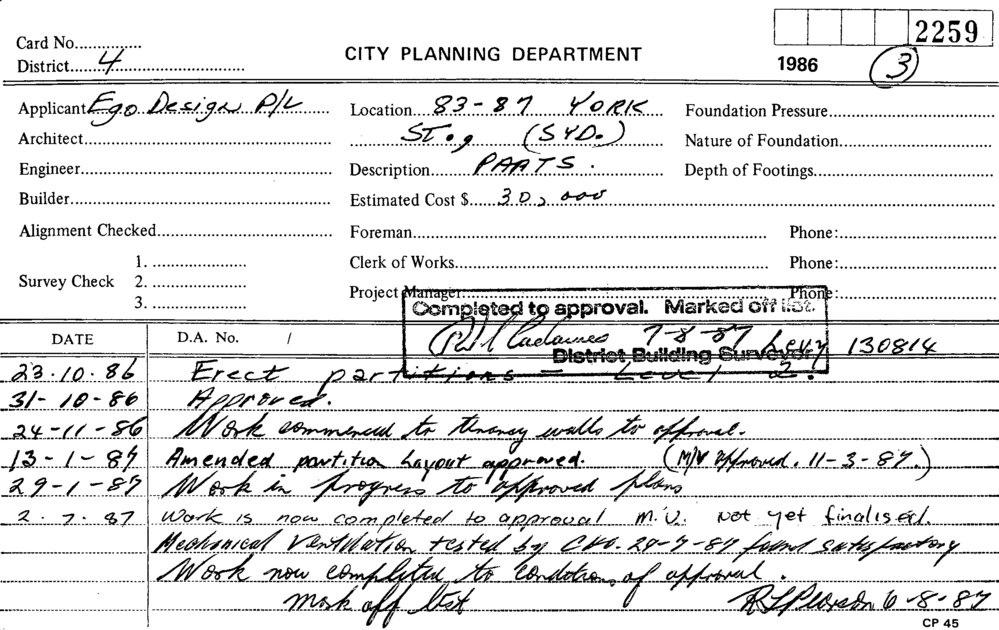 2259
Card No...............
District......4..............................
CITY PLANNING DEPARTMENT
1986 3
Applicant Ego Design P/L
Location 83-87 YORK
Foundation Pressure
Architect
ST., (SYD.)
Nature of Foundation
Engineer
Description PARTS.
Depth of Footings
Builder
Estimated Cost $ 30,000
Alignment Checked
Foreman
Phone:
1.
Clerk of Works
Phone:
Survey Check 2.
Project Manager:
Phone:
3.
Completed to approval. Marked off list.
DATE
D.A. No. /
7-8-87
Levy 130814
District Building Surveyor
23.10.86 Erect partitions - Level 2.
31-10-86 Approved.
24-11-86 Work commenced to tenancy walls to approval.
13-1-87 Amended partition layout approved. (M/V Approved. 11-3-87.)
29-1-87 Work in progress to approved plans
2.7.87 Work is now completed to approval M.V. not yet finalised.
Mechanical Ventilation tested by 29-7-87 found satisfactory
Work now completed to conditions of approval.
Mark off list
R L Pearson 6-8-87
CP 45